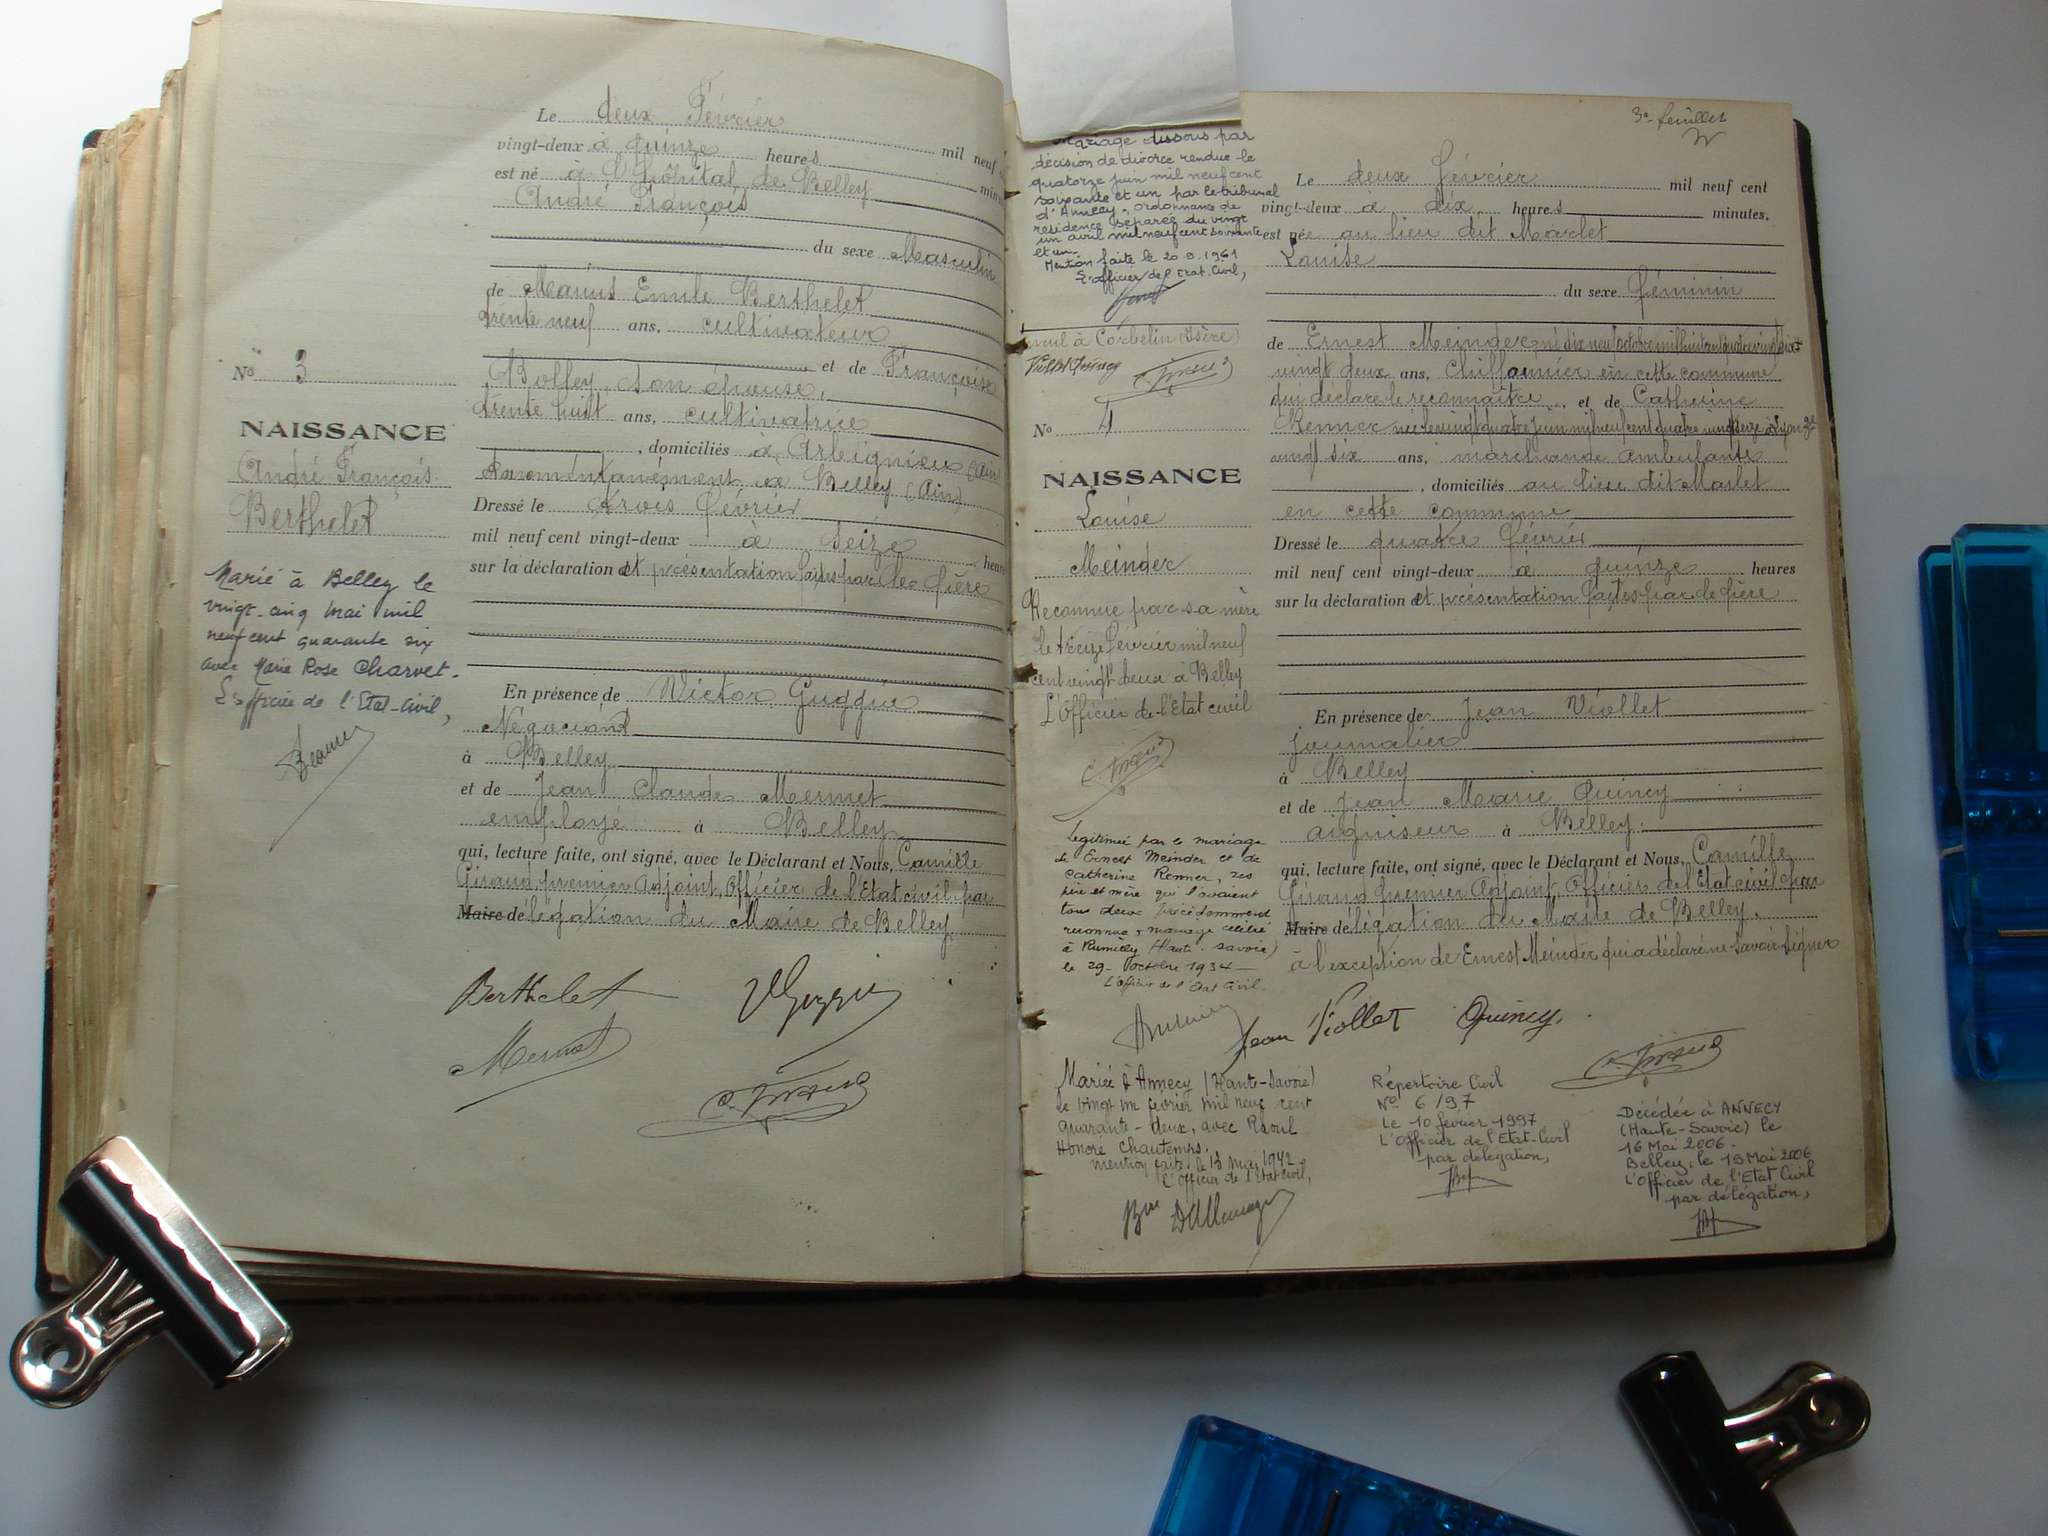 Le deux Février mil neuf
vingt-deux à quinze heures minutes
est né à l'hôpital de Belley
André François
du sexe Masculin
de Marius Emile Berthelet
trente neuf ans, cultivateur
et de Françoise
Bolley, son épouse,
trente huit ans, cultivatrice
, domiciliés à Arbignieu (Ain)
momentanément à Belley (Ain)
Dressé le trois février
mil neuf cent vingt-deux à seize heures
sur la déclaration et présentation faites par le père
En présence de Victor Guggia
Négociant
à Belley
et de Jean Claude Mermet
employé à Belley
qui, lecture faite, ont signé, avec le Déclarant et Nous, Camille
Giraud premier Adjoint, Officier de l'Etat civil par
Maire délégation du Maire de Belley.
Berthelet
Mermet
No 3
NAISSANCE
André François
Berthelet
Marié à Belley le
vingt-cinq mai mil
neuf cent quarante six
avec Marie Rose Charvet.
L'officier de l'Etat-Civil,
3e feuillet
Mariage dissous par
décision de divorce rendue le
quatorze juin mil neuf cent
soixante et un par le tribunal
d'Annecy, ordonnance de
résidence séparée du vingt
un avril mil neuf cent soixante
et un.
Mention faite le 20.9.1961
L'officier de l'Etat-Civil,
nul à Corbelin (Isère)
No 4
NAISSANCE
Louise
Meinder
Reconnue par sa mère
le treize Février mil neuf
cent vingt deux à Belley
L'Officier de l'Etat civil
Légitimée par le mariage
de Ernest Meinder et de
Catherine Renner, ses
père et mère qui l'avaient
tous deux précédemment
reconnue, mariage célébré
à Rumilly (Haute-Savoie)
le 29 octobre 1934
L'officier de l'Etat Civil.
Le deux février mil neuf cent
vingt-deux à dix heures minutes,
est née au lieu dit Marlet
Louise
du sexe féminin
de Ernest Meinder, né dix neuf octobre mil huit cent quatre vingt dix
vingt deux ans, Chiffonnier en cette commune
qui déclare le reconnaître, et de Catherine
Renner née le vingt quatre juin mil huit cent quatre vingt seize à Lyon
vingt six ans, marchande ambulante
, domiciliés au lieu dit Marlet
en cette commune
Dressé le quatre février
mil neuf cent vingt-deux à quinze heures
sur la déclaration et présentation faites par le père
En présence de Jean Viollet
journalier
à Belley
et de Jean Marie Quincy
aiguiseur à Belley.
qui, lecture faite, ont signé, avec le Déclarant et Nous, Camille
Giraud premier Adjoint, Officier de l'Etat civil par
Maire délégation du Maire de Belley.
à l'exception de Ernest Meinder qui a déclaré ne savoir signer
Jean Viollet Quincy
Mariée à Annecy (Haute-Savoie)
le vingt un février mil neuf cent
quarante-deux, avec Raoul
Honoré Chautemps.
mention faite le 13 mai 1942
L'officier de l'Etat Civil,
Répertoire Civil
No 6/97
Le 10 février 1997
L'Officier de l'Etat-Civil
par délégation,
Décédée à ANNECY
(Haute-Savoie) le
16 Mai 2006.
Belley, le 19 Mai 2006
L'Officier de l'Etat Civil
par délégation,